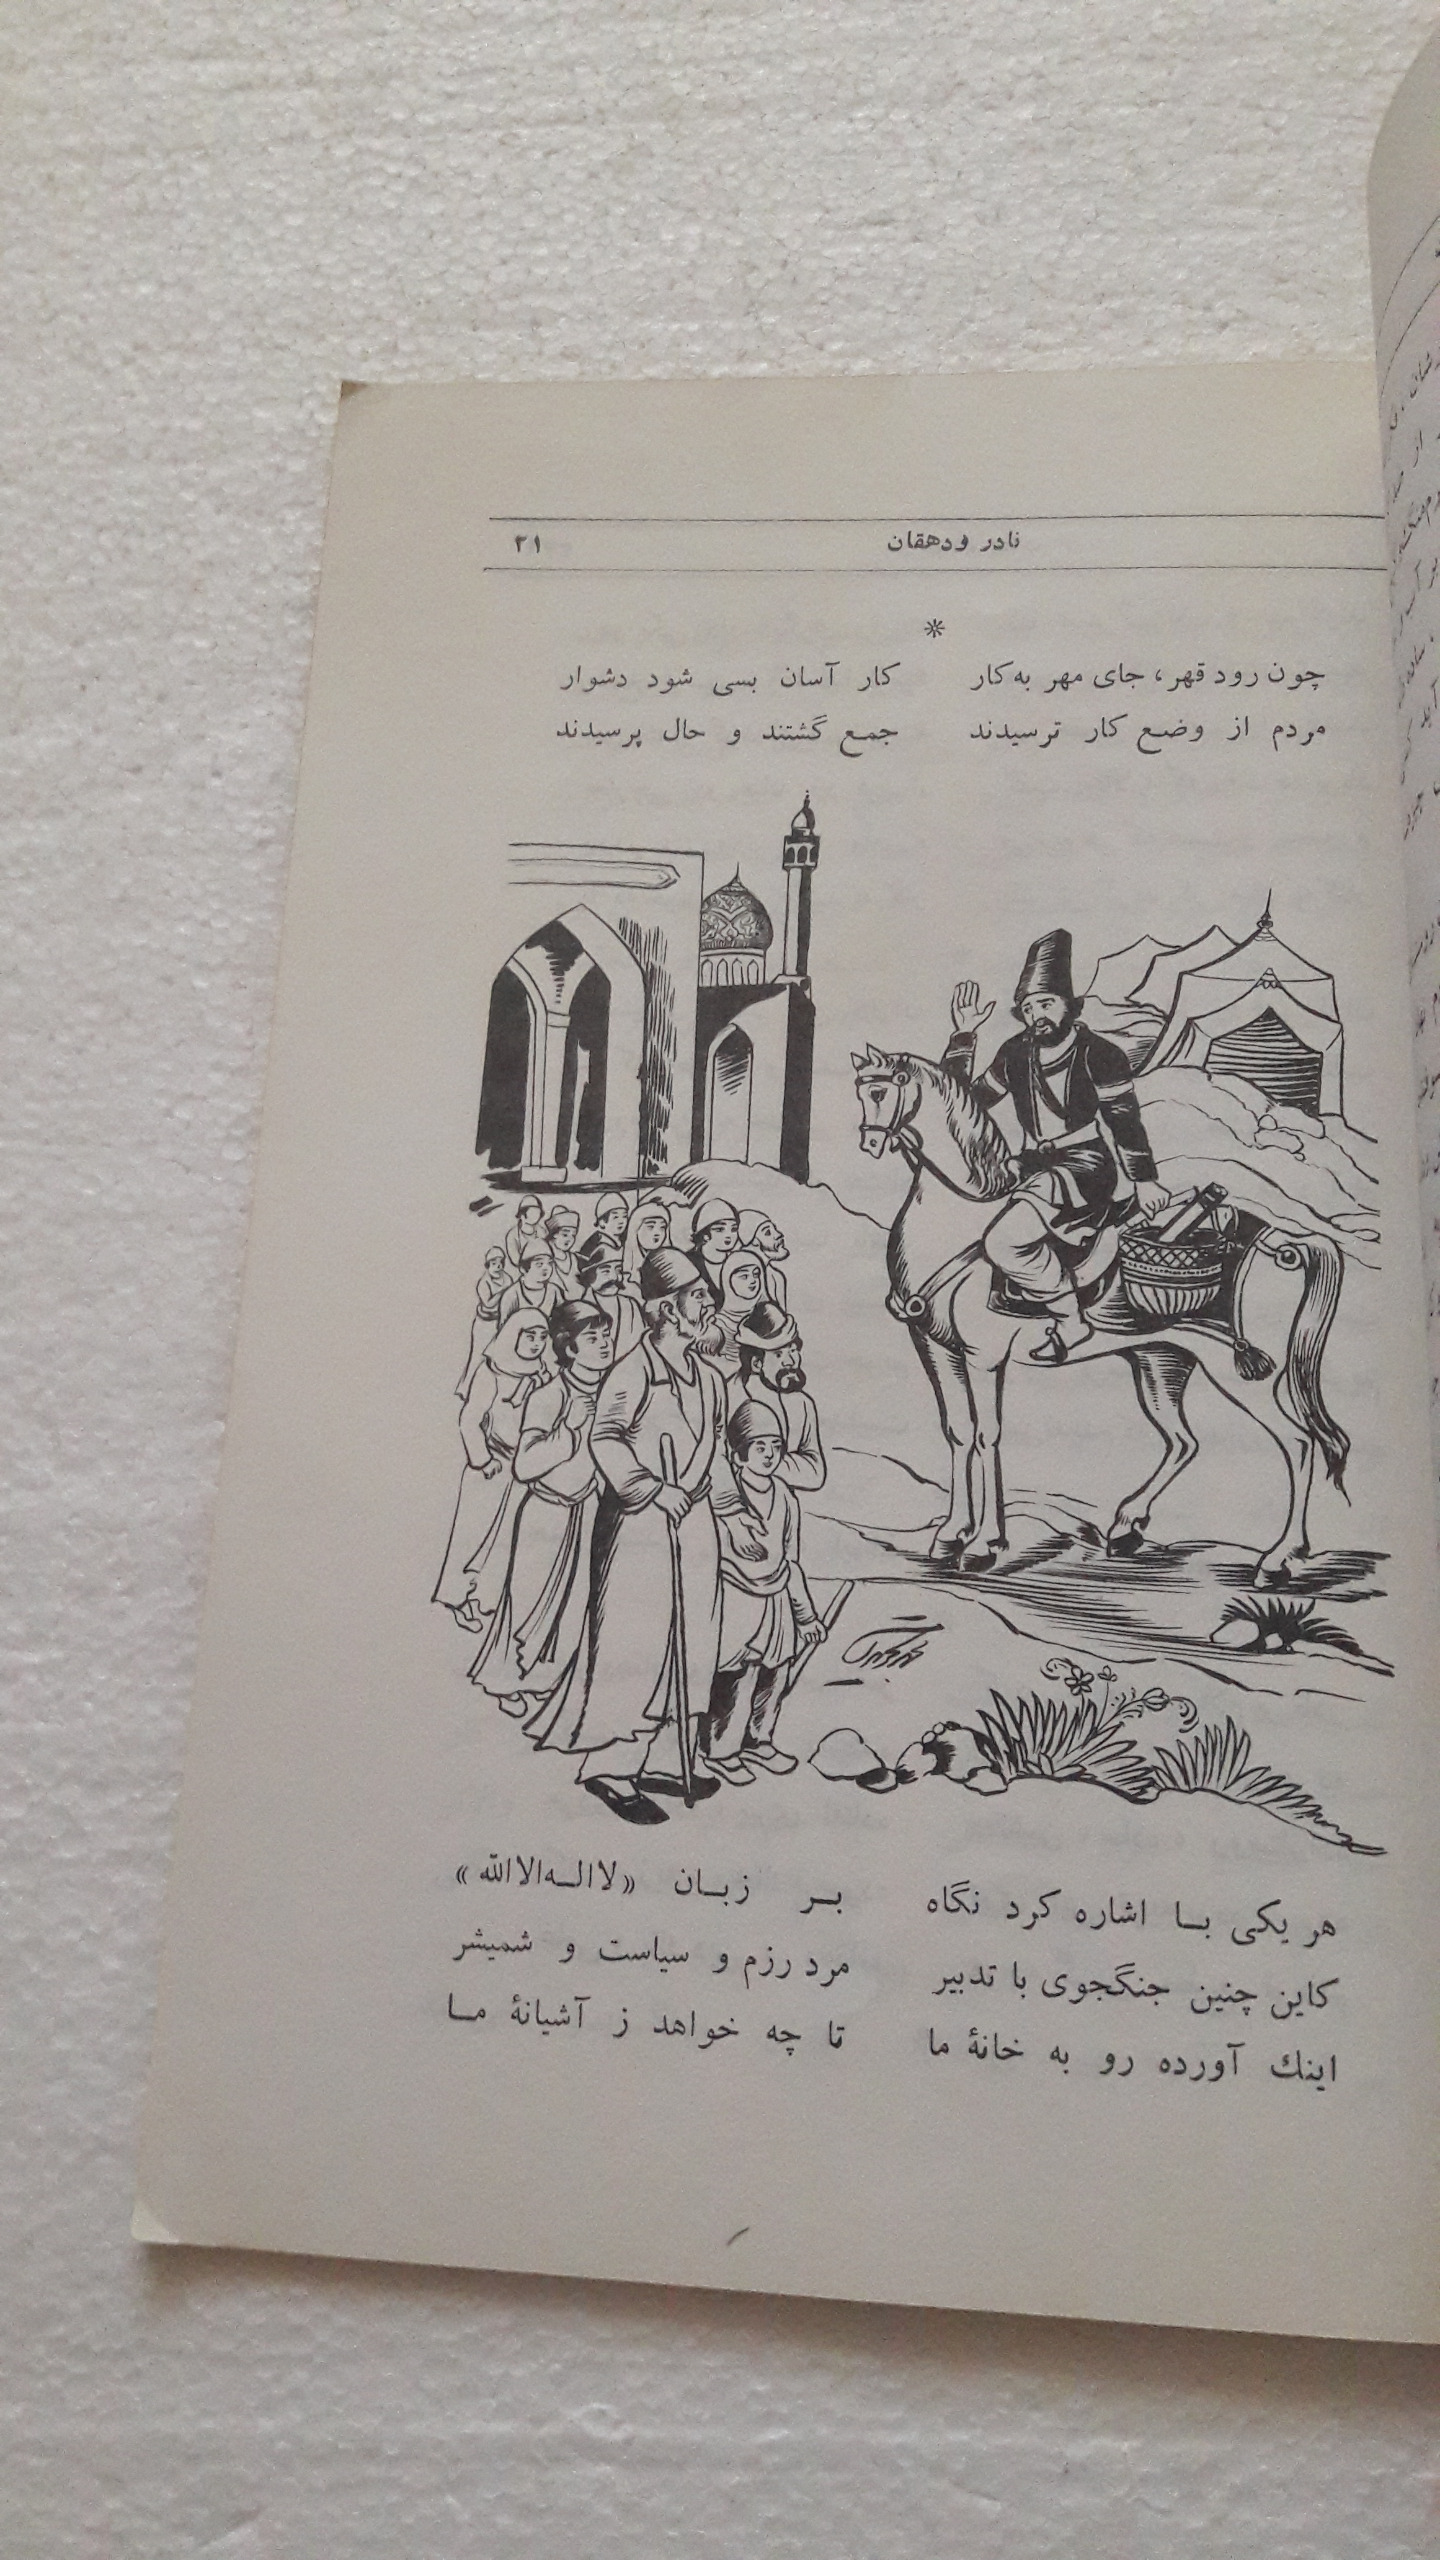 نادر و دهقان ۲۱
*
چون رود قهر، جای مهر به کار کار آسان بسی شود دشوار
مردم از وضع کار ترسیدند جمع گشتند و حال پرسیدند
هر یکی با اشاره کرد نگاه بر زبان «لااله‌الاالله»
کاین چنین جنگجوی با تدبیر مرد رزم و سیاست و شمیشر
اینك آورده رو به خانهٔ ما تا چه خواهد ز آشیانهٔ ما